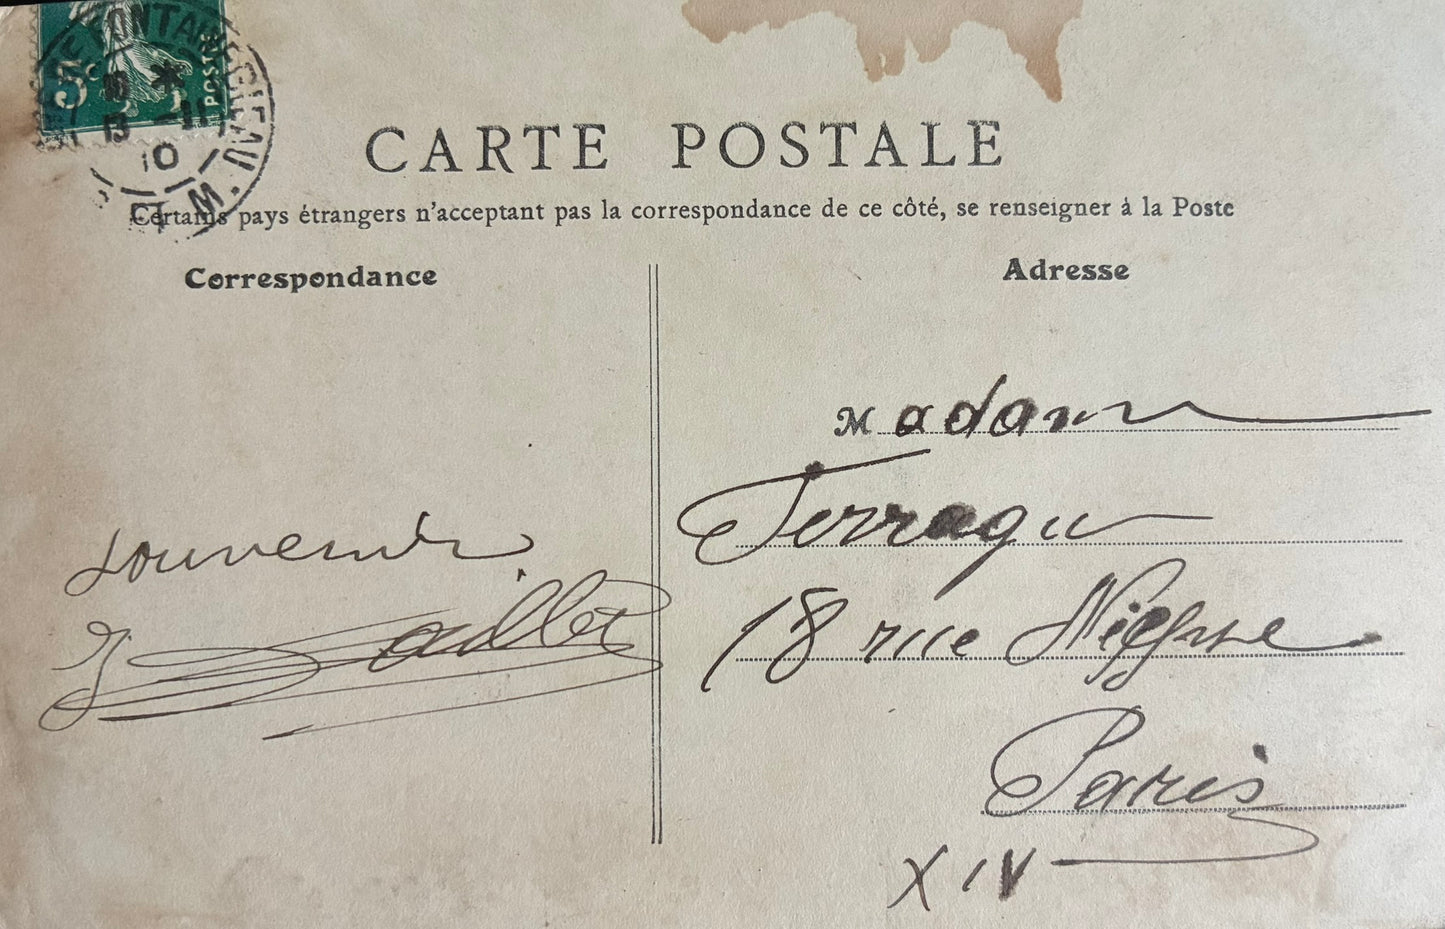 5c
POSTES
FONTAINEBLEAU
10 *
13 -11
10
CARTE POSTALE
Certains pays étrangers n'acceptant pas la correspondance de ce côté, se renseigner à la Poste
Correspondance
Adresse
Madame
Terragu
18 rue Niepce
Paris
XIV
souvenir